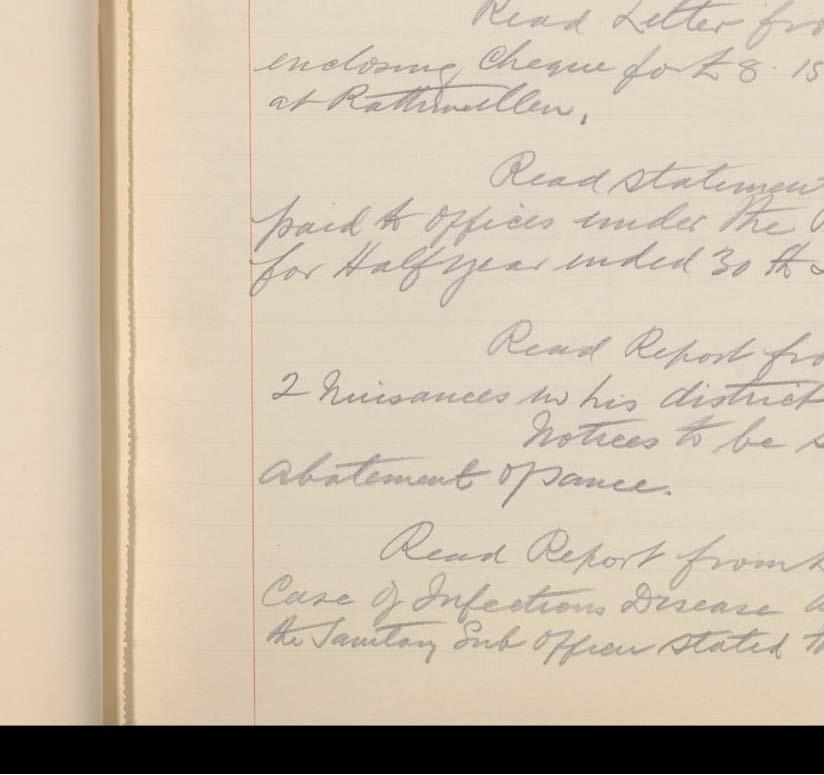 Read Letter fro
enclosing Cheque for £ 8. 15
at Rathmullen.
Read statement
paid to offices under the
for Half year ended 30th
Read Report fro
2 Nuisances in his district
Notices to be s
abatement of same.
Read Report from
Case of Infectious Disease a
the Sanitary Sub Officer stated th